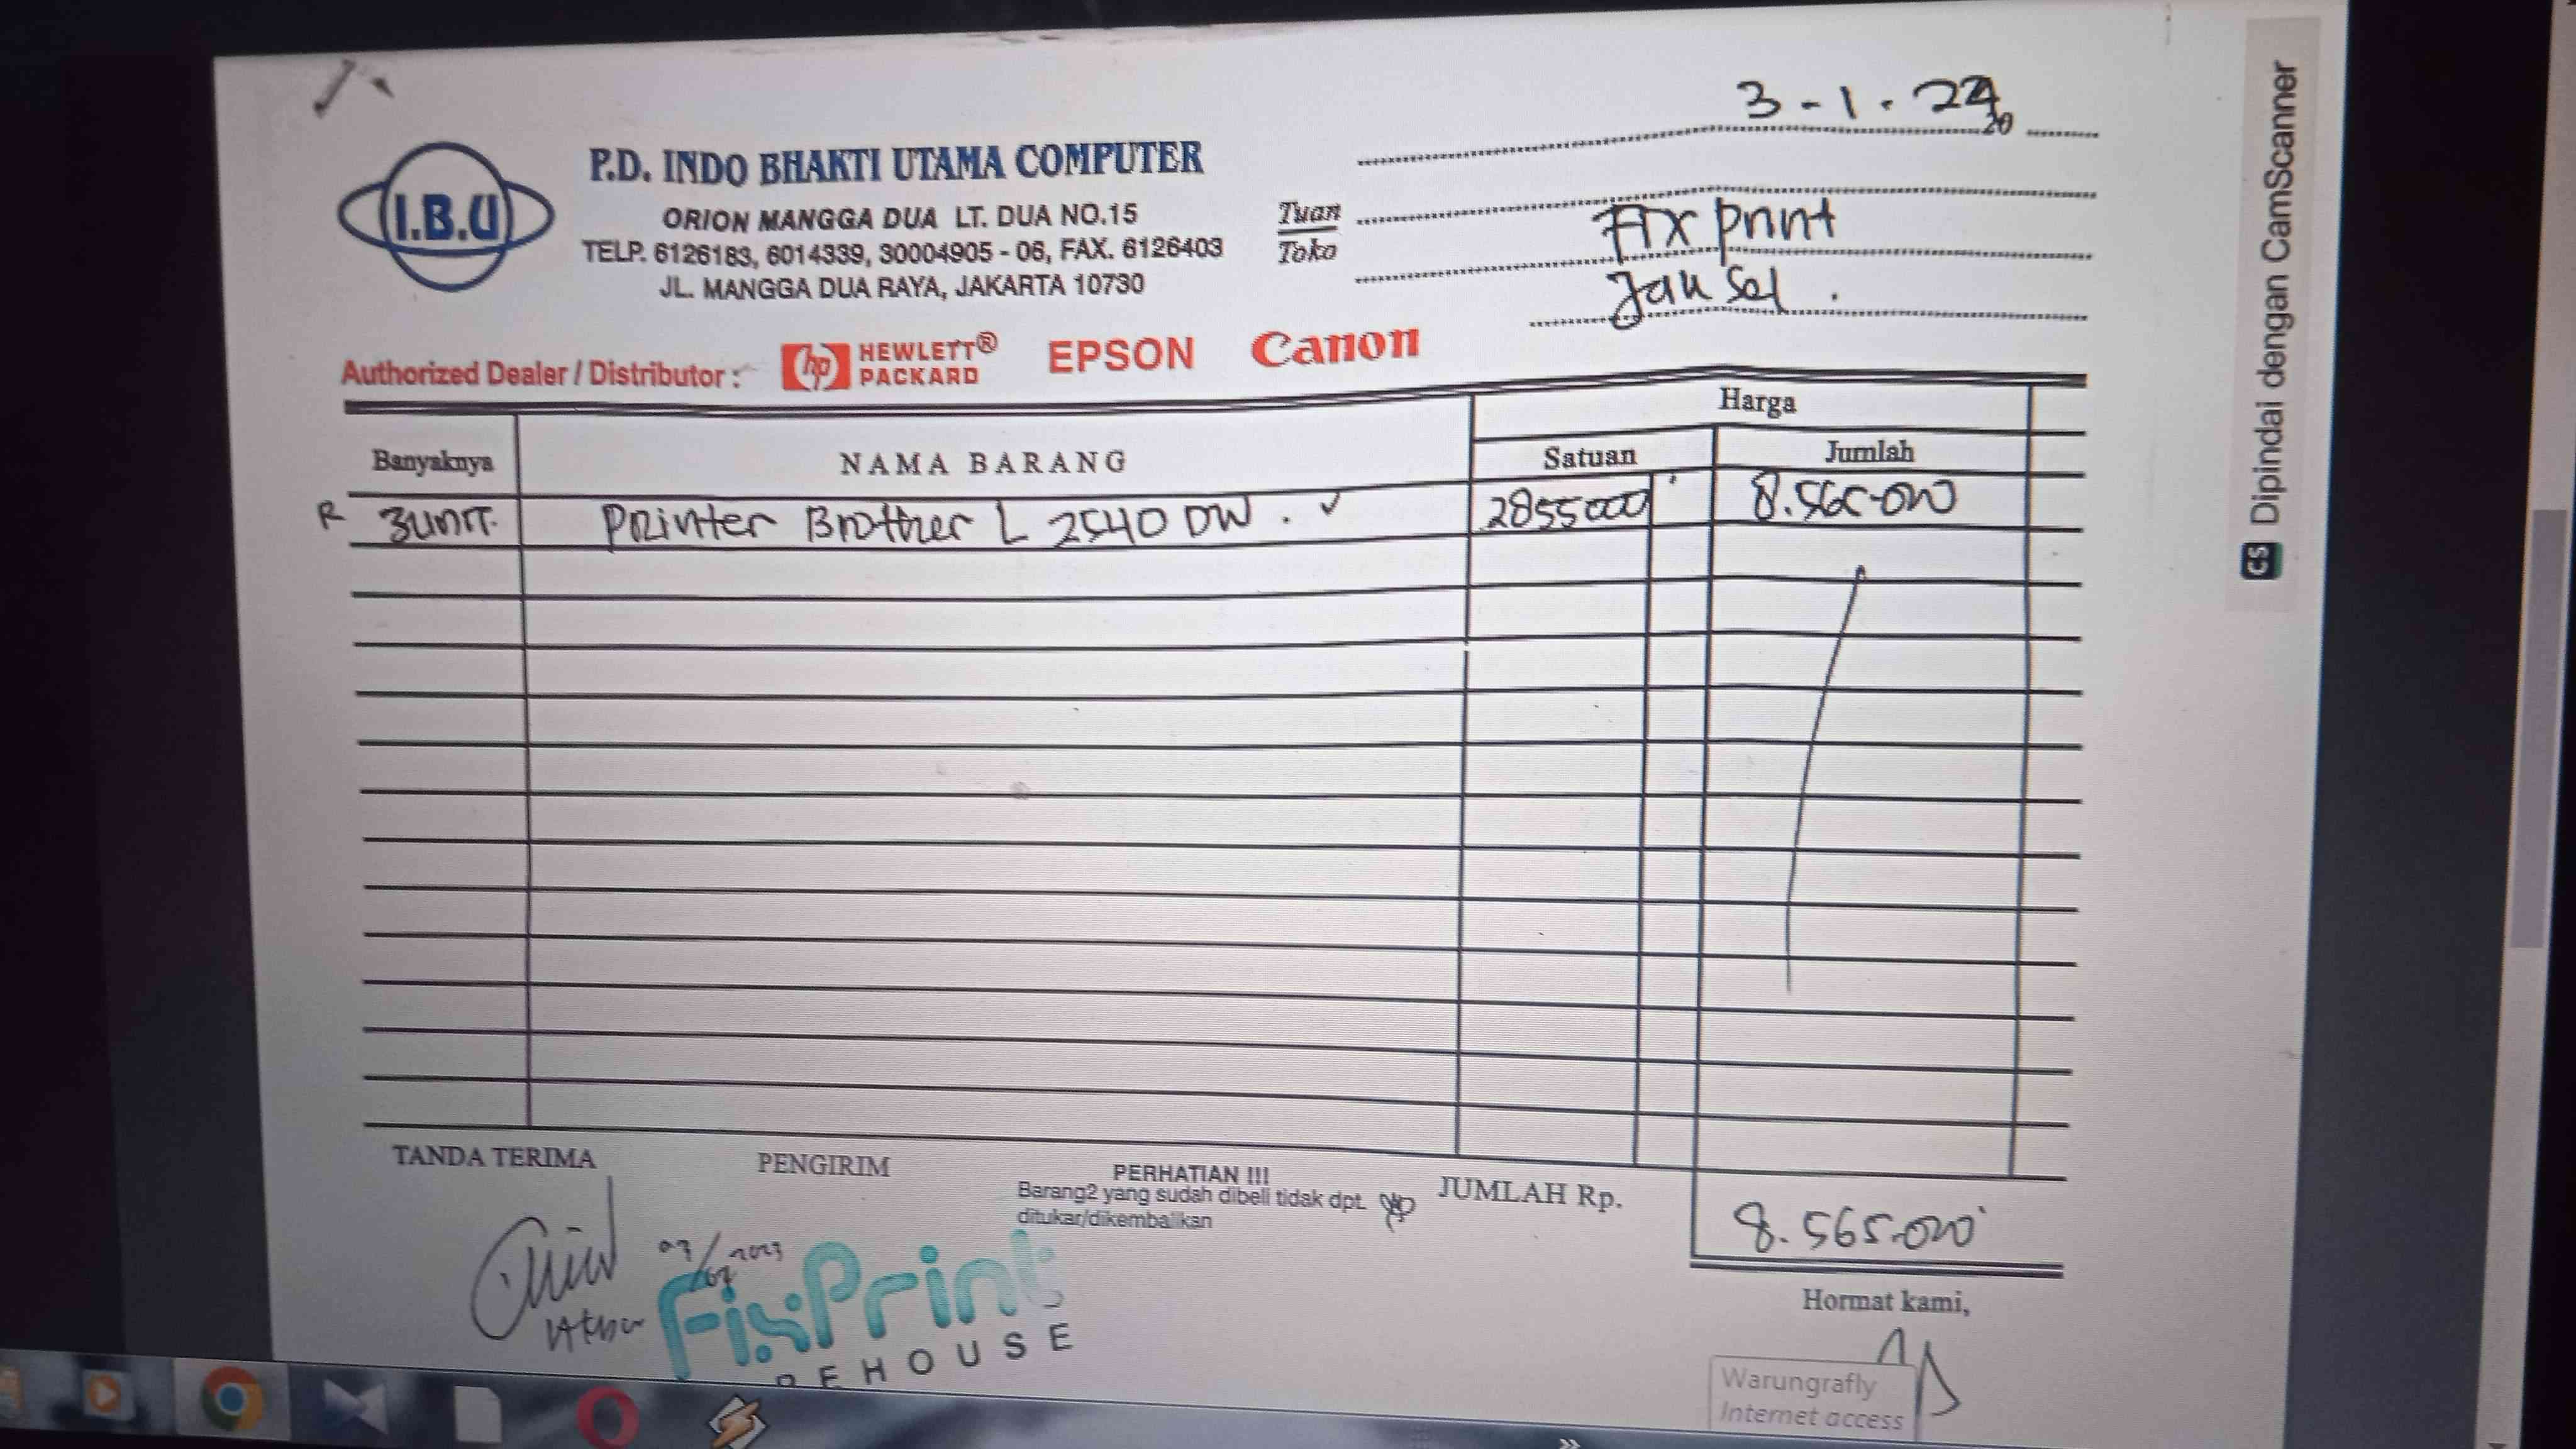 3-1-23
20
P.D. INDO BHAKTI UTAMA COMPUTER
I.B.U
ORION MANGGA DUA LT. DUA NO.15
TELP. 6126183, 6014339, 30004905 - 06, FAX. 6126403
JL. MANGGA DUA RAYA, JAKARTA 10730
Tuan
Toko
Fix print
Jak sel.
Authorized Dealer / Distributor : hp HEWLETT® PACKARD EPSON Canon
Harga
Banyaknya NAMA BARANG Satuan Jumlah
R 3 unit. Printer Brother L 2540 DW. ✓ 2855000 8.565.000
TANDA TERIMA PENGIRIM
PERHATIAN !!!
Barang2 yang sudah dibeli tidak dpt
ditukar/dikembalikan
JUMLAH Rp. 8.565.000
FixPrint
EHOUSE
Hormat kami,
Warungrafly
Internet access
CS Dipindai dengan CamScanner